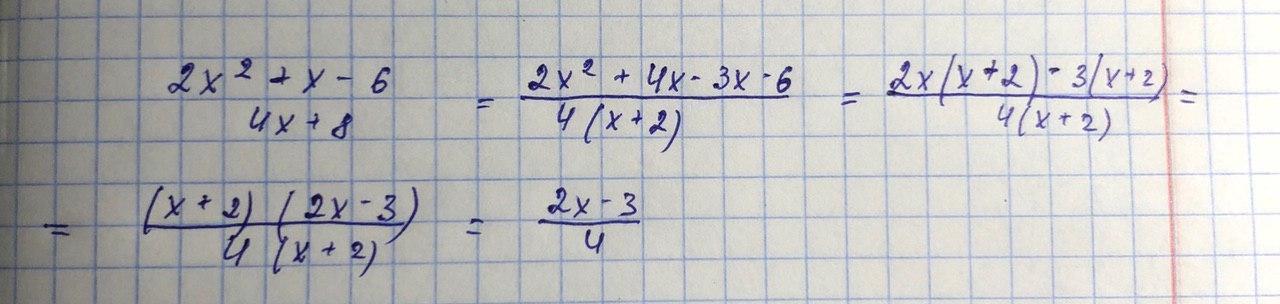 2x² + x - 6 / 4x + 8 = 2x² + 4x - 3x - 6 / 4(x+2) = 2x(x+2) - 3(x+2) / 4(x+2) =
= (x+2)(2x-3) / 4(x+2) = 2x-3 / 4